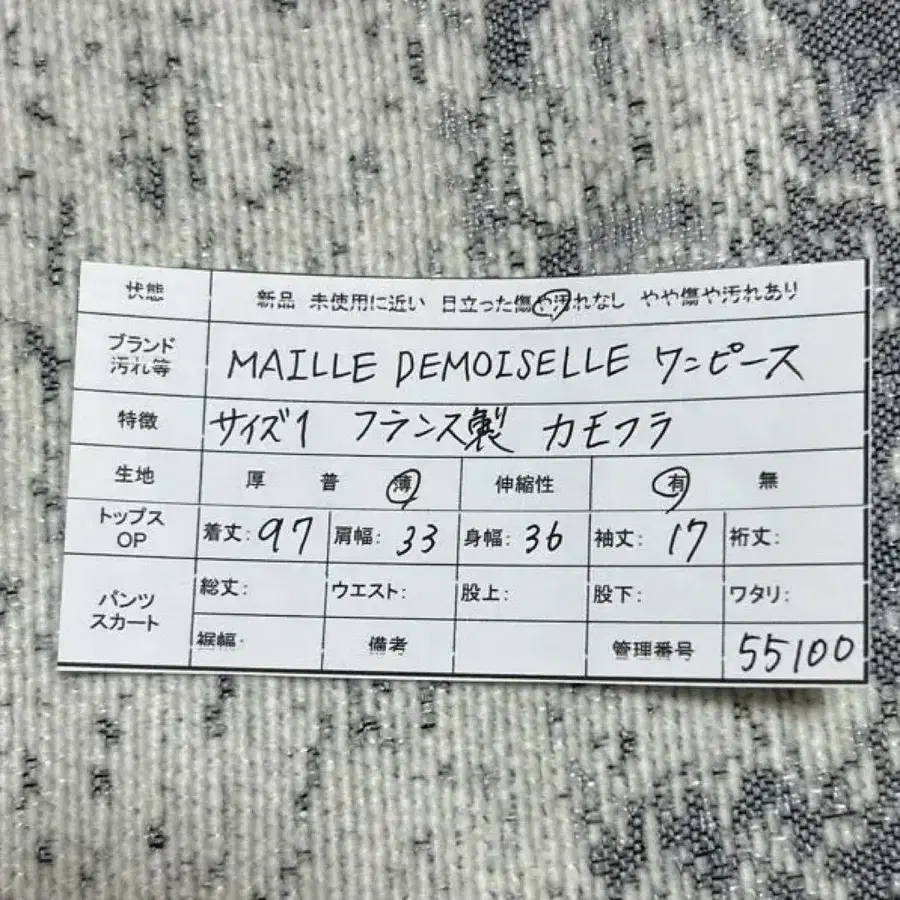 状態 新品 未使用に近い 目立った傷や汚れなし やや傷や汚れあり
ブランド
汚れ等
MAILLE DEMOISELLE ワンピース
特徴 サイズ1 フランス製 カモフラ
生地 厚 普 薄 伸縮性 有 無
トップス
OP
着丈: 97 肩幅: 33 身幅: 36 袖丈: 17 裄丈:
パンツ
スカート
総丈: ウエスト: 股上: 股下: ワタリ:
裾幅: 備考 管理番号 55100